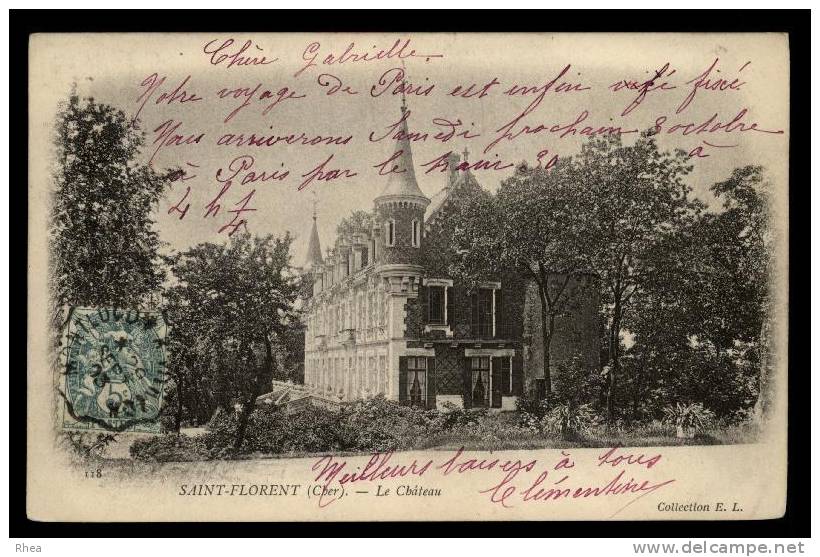 Chère Gabrielle
Notre voyage de Paris est enfin fixé
Nous arriverons Samedi prochain 8 octobre
à Paris par le train 30 à
4 h
MONTLUCON
118
Meilleurs baisers à tous
Clémentine
SAINT-FLORENT (Cher). — Le Château
Collection E. L.
Rhea
http://www.delcampe.net